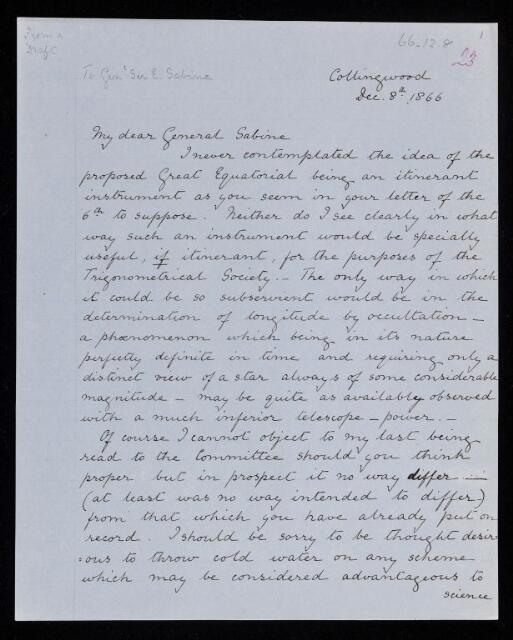 From a
Draft
66-12.8
1
23
To Genl Sir E. Sabine
Collingwood
Dec. 8th, 1866
My dear General Sabine
I never contemplated the idea of the
proposed Great Equatorial being an itinerant
instrument as you seem in your letter of the
6th to suppose. Neither do I see clearly in what
way such an instrument would be specially
useful, if itinerant, for the purposes of the
Trigonometrical Society. – The only way in which
it could be so subservient would be in the
determination of longitude by occultation –
a phænomenon which being in its nature
perfectly definite in time and requiring only a
distinct view of a star always of some considerable
magnitude – may be quite as availably observed
with a much inferior telescope – power. –
Of course I cannot object to my last being
read to the Committee should you think
proper but in prospect it no way differ –
(at least was no way intended to differ)
from that which you have already put on
record. I should be sorry to be thought desir=
=ous to throw cold water on any scheme
which may be considered advantageous to
science